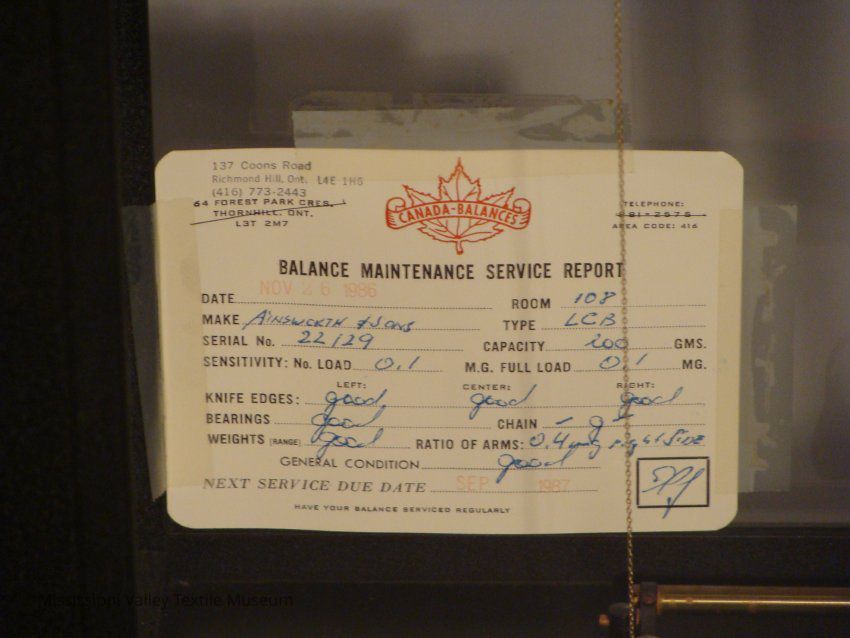 137 Coons Road
Richmond Hill, Ont. L4E 1H6
(416) 773-2443
64 FOREST PARK CRES.
THORNHILL, ONT.
L3T 2M7
CANADA-BALANCES
TELEPHONE:
881-2575
AREA CODE: 416
BALANCE MAINTENANCE SERVICE REPORT
DATE NOV 26 1986 ROOM 108
MAKE AINSWORTH & SONS TYPE LCB
SERIAL No. 22129 CAPACITY 200 GMS.
SENSITIVITY: No. LOAD 0.1 M.G. FULL LOAD 0.1 MG.
LEFT: CENTER: RIGHT:
KNIFE EDGES: good good good
BEARINGS good CHAIN
WEIGHTS (RANGE) good RATIO OF ARMS: 0.4 mg right side
GENERAL CONDITION good
NEXT SERVICE DUE DATE SEP 1987
HAVE YOUR BALANCE SERVICED REGULARLY
Mississippi Valley Textile Museum